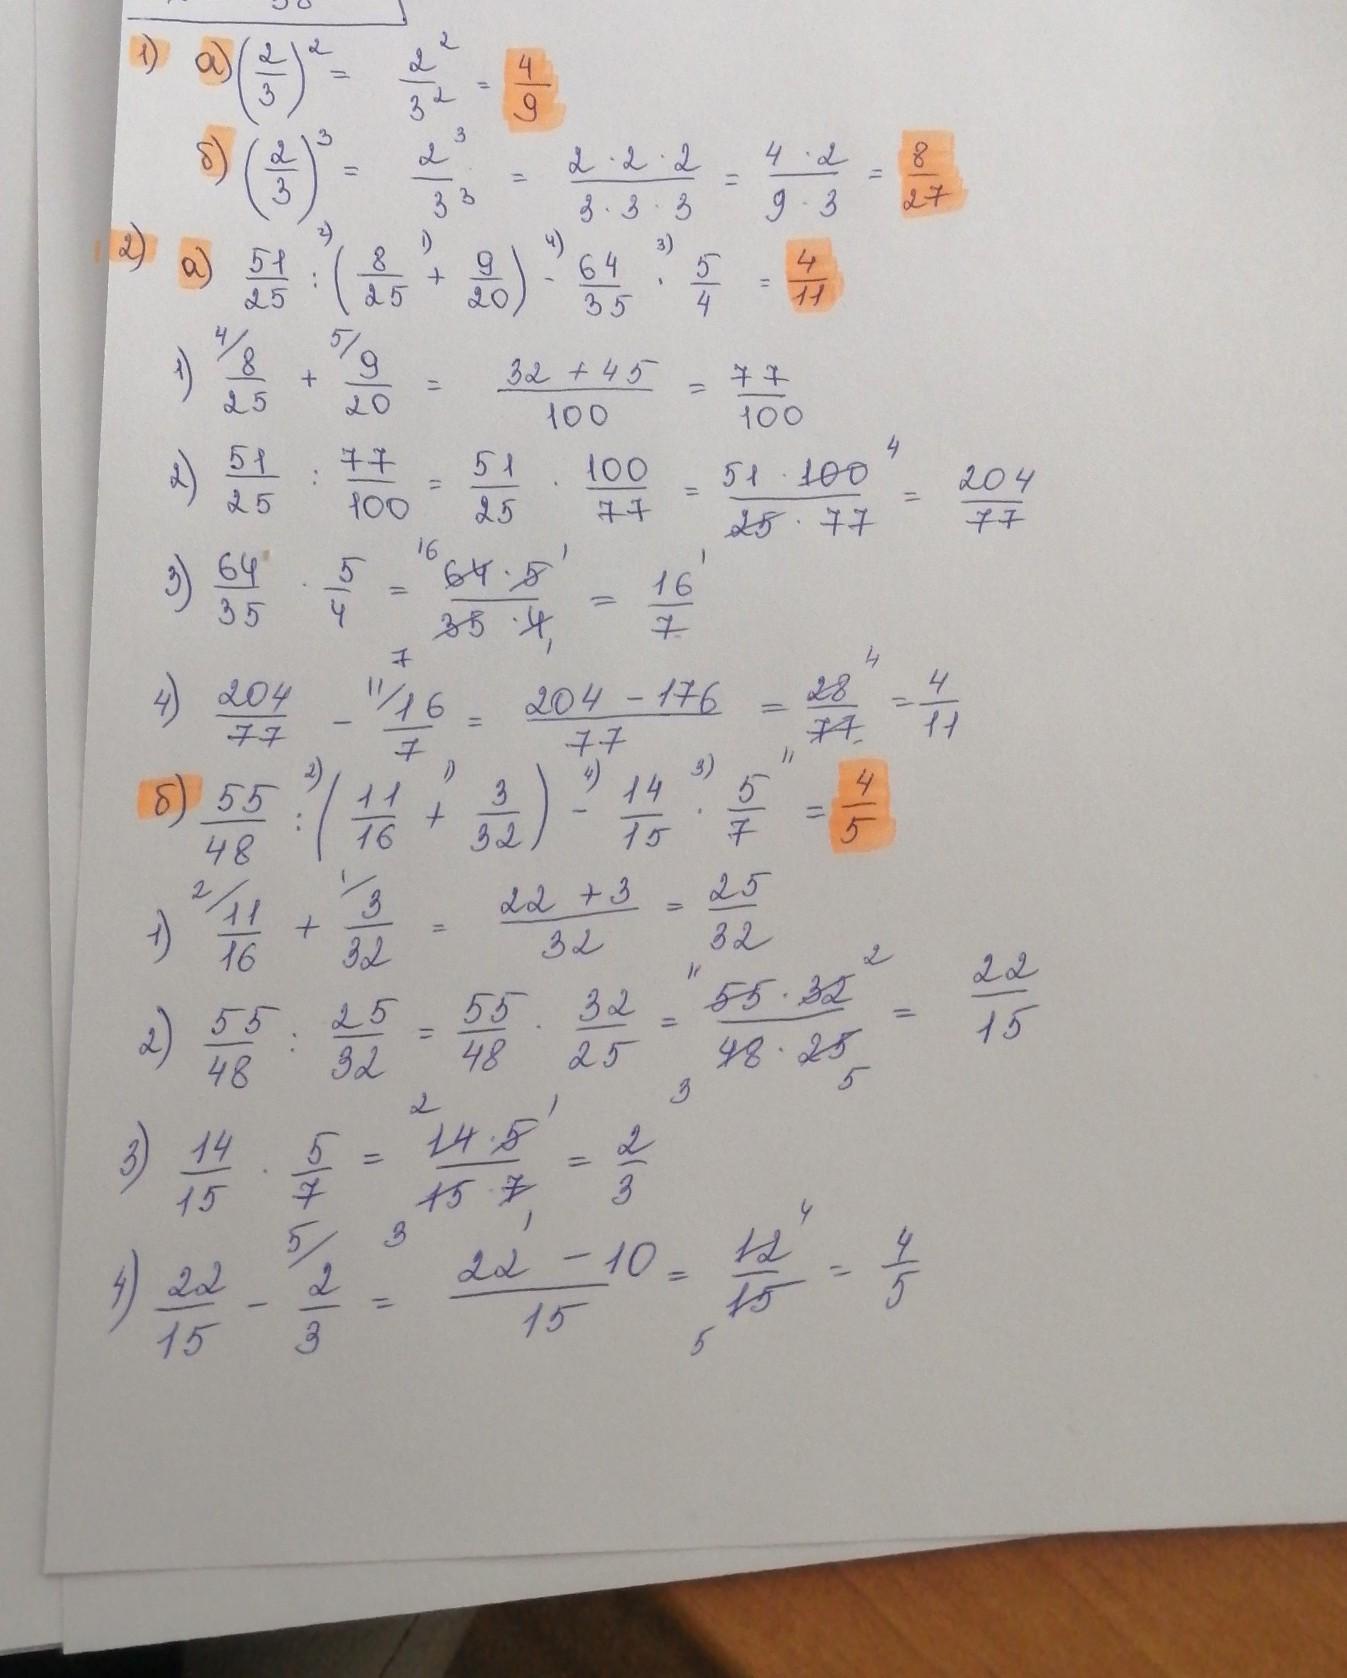 1) а) (2/3)² = 2²/3² = 4/9
б) (2/3)³ = 2³/3³ = 2·2·2/3·3·3 = 4·2/9·3 = 8/27
2) а) 51/25 :²⁾ (8/25 +¹⁾ 9/20) -⁴⁾ 64/35 ·³⁾ 5/4 = 4/11
1) ⁴/8/25 + ⁵/9/20 = 32+45/100 = 77/100
2) 51/25 : 77/100 = 51/25 · 100/77 = 51·100⁴/25·77 = 204/77
3) 64/35 · 5/4 = ¹⁶64·5¹/35·4₁ = 16/7
7
4) 204/77 - ¹¹/16/7 = 204-176/77 = 28⁴/77 = 4/11
б) 55/48 :²⁾ (11/16 +¹⁾ 3/32) -⁴⁾ 14/15 ·³⁾ 5/7 = 4/5
1) ²/11/16 + ¹/3/32 = 22+3/32 = 25/32
2) 55/48 : 25/32 = 55/48 · 32/25 = ¹¹55·32²/48·25 = 22/15
3 5
3) 14/15 · 5/7 = ²14·5¹/15·7 = 2/3
3 1
4) 22/15 - ⁵/2/3 = 22-10/15 = 12⁴/15 = 4/5
5